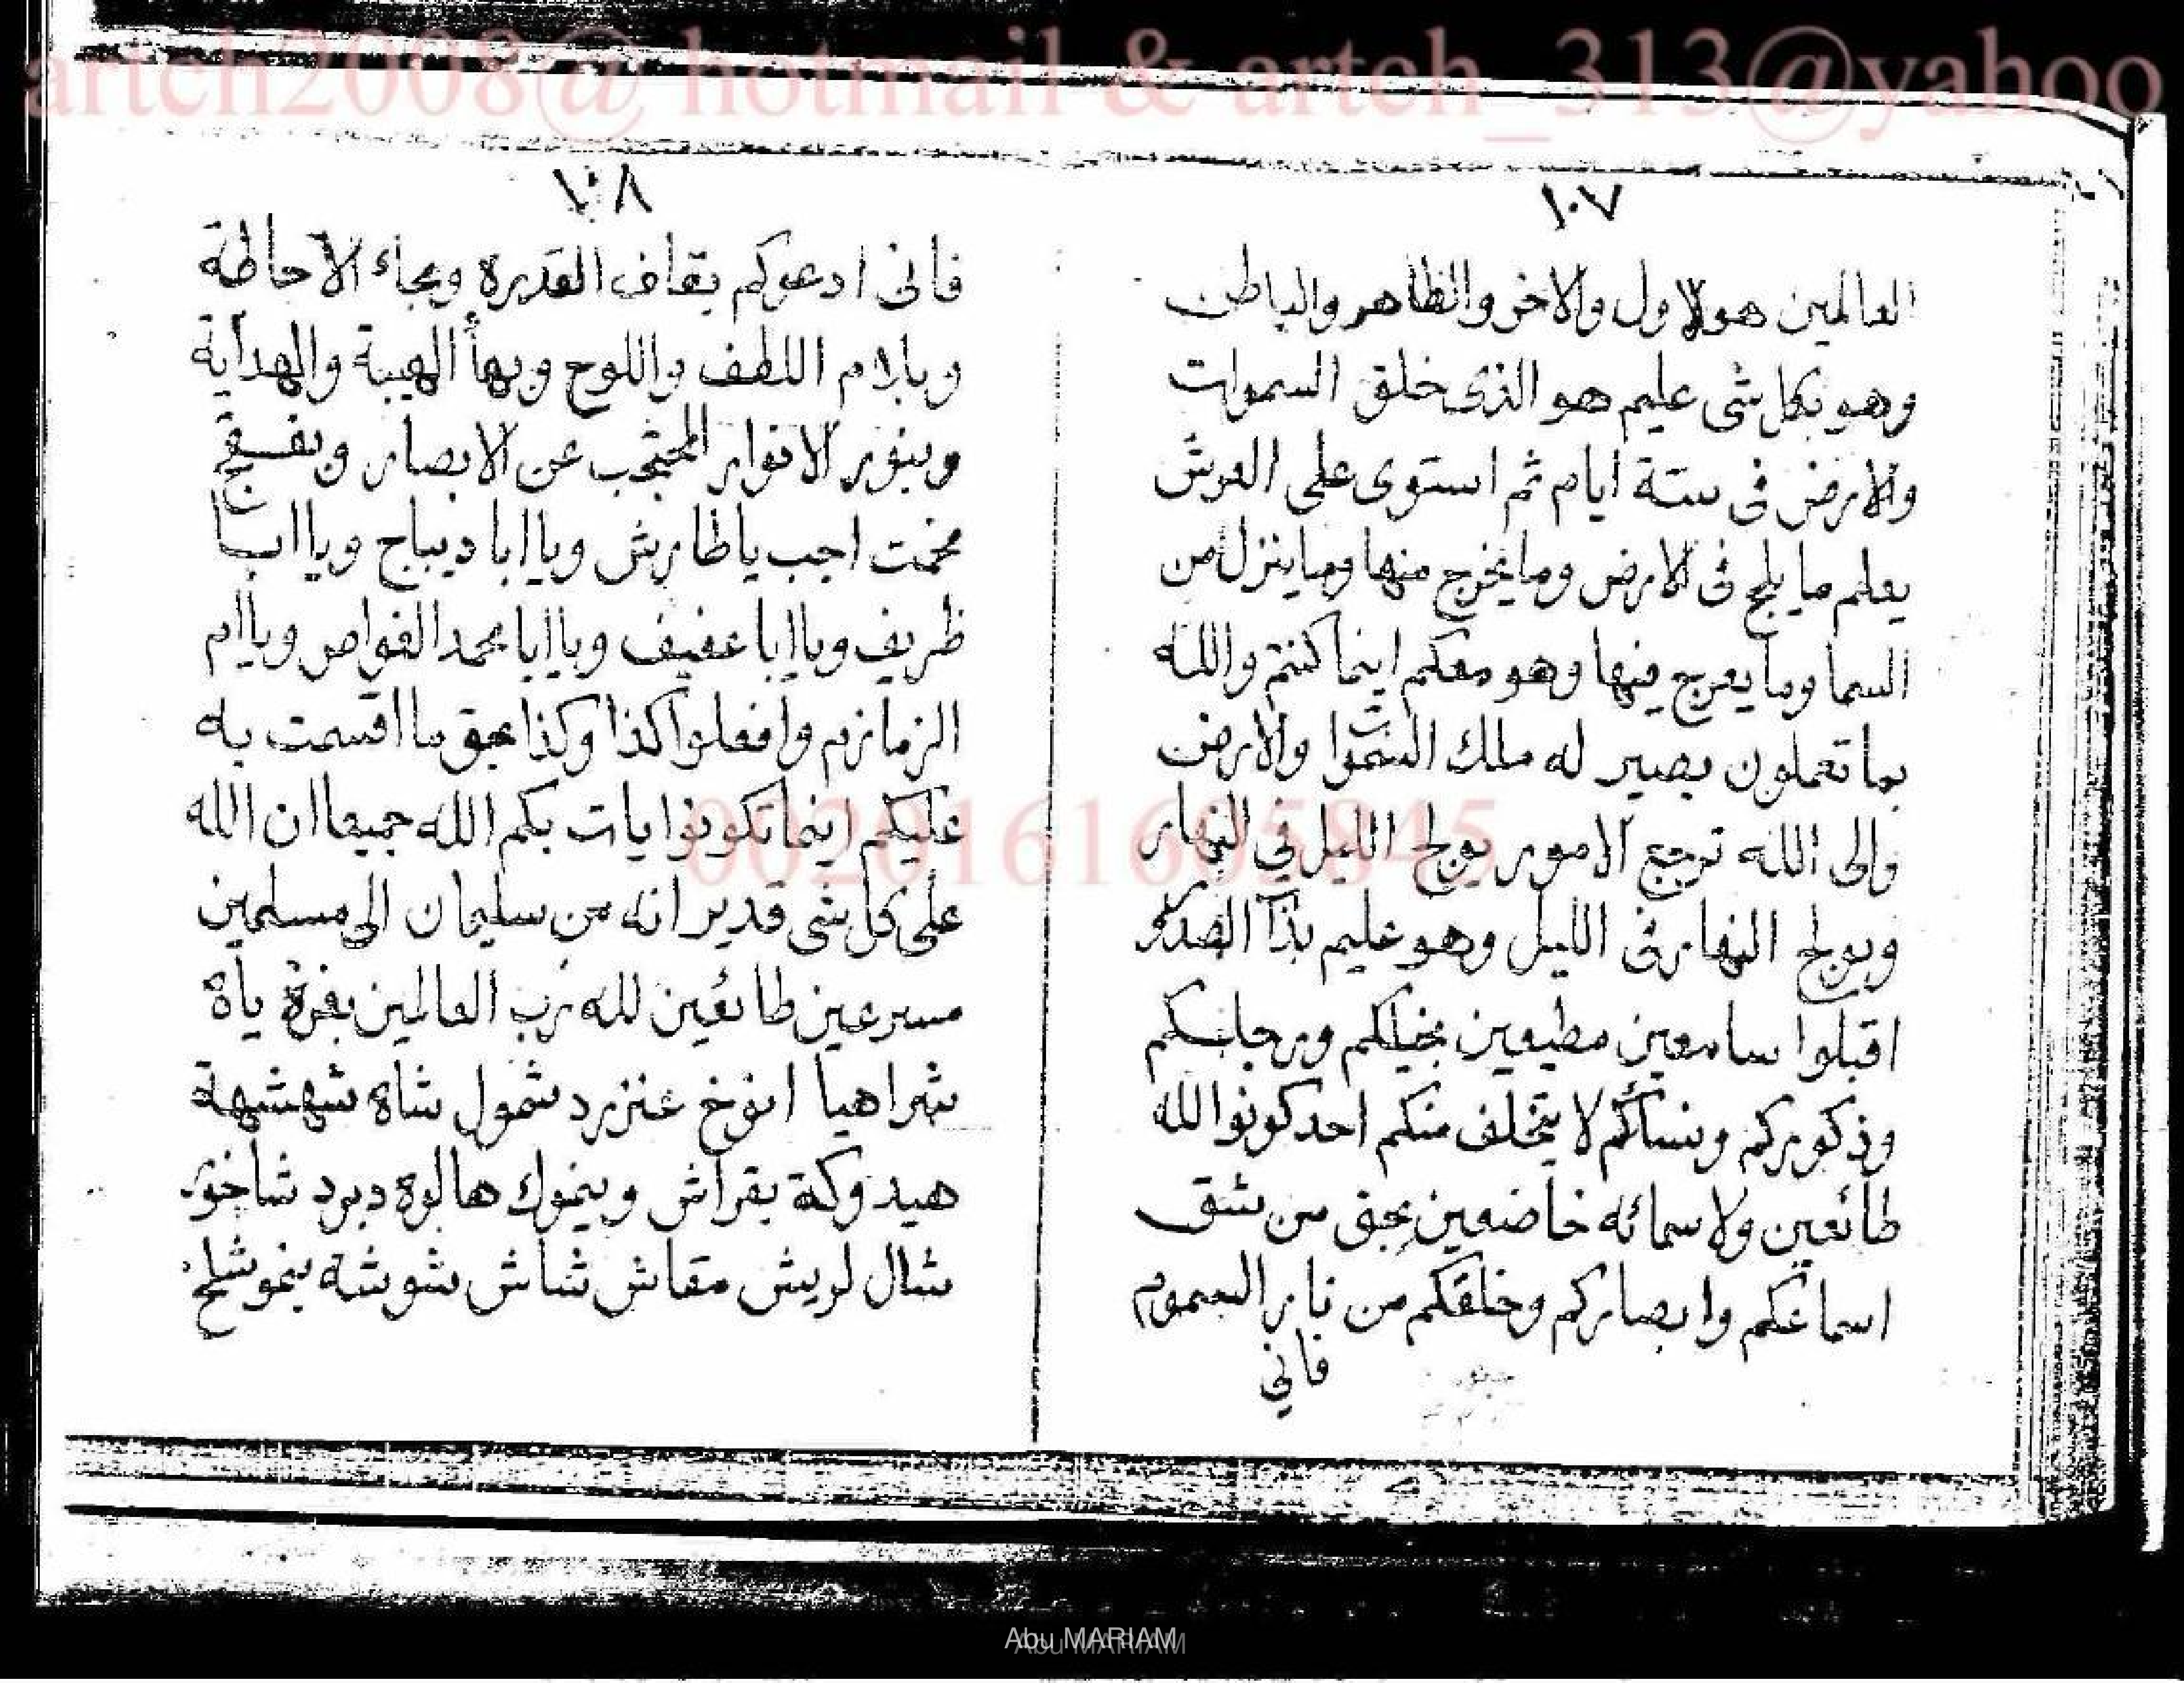 artch2008@ hotmail & artch_313@yahoo
١٠٧
العالمين هو الاول والاخر والظاهر والباطن
وهو بكل شى عليم هو الذى خلق السموات
والارض فى ستة ايام ثم استوى على العرش
يعلم ما يلج فى الارض وما يخرج منها وما ينزل من
السما وما يعرج فيها وهو معكم اينما كنتم والله
بما تعملون بصير له ملك السموات والارض
والى الله ترجع الامور يولج الليل في النهار
ويولج النهار فى الليل وهو عليم بذات الصدور
اقبلوا سامعين مطيعين بخيلكم ورجلكم
وذكوركم ونسائكم لا يتخلف منكم احد كونوا لله
طائعين ولاسمائه خاضعين بحق من شق
اسماعكم وابصاركم وخلقكم من نار السموم
فاني
١٠٨
فانى ادعوكم بقاف القدرة وبحاء الاحاطة
وبلام اللطف واللوح وبهأ الهيبة والهداية
وبنور الانوار المحتجب عن الابصار وبفسقج
مخمت اجب ياطارش ويا ابا ديباج ويا ابا
ظريف ويا ابا عفيف ويا ابا محمد الغواص ويا ام
الزمازم وافعلوا كذا وكذا بحق ما اقسمت به
عليكم اينما تكونوا يات بكم الله جميعا ان الله
على كل شى قدير انه من سليمان الى مسلمين
مسرعين طائعين لله رب العالمين بعزة ياة
شراهيا انوخ عنزرد شمول شاه شهشهة
هيدوكة بقراش وبنموك هالوه دبرد شاخو
شال لريش مقاش شاش شوشة بنموشلخ
00201616605845
Abu MARIAM